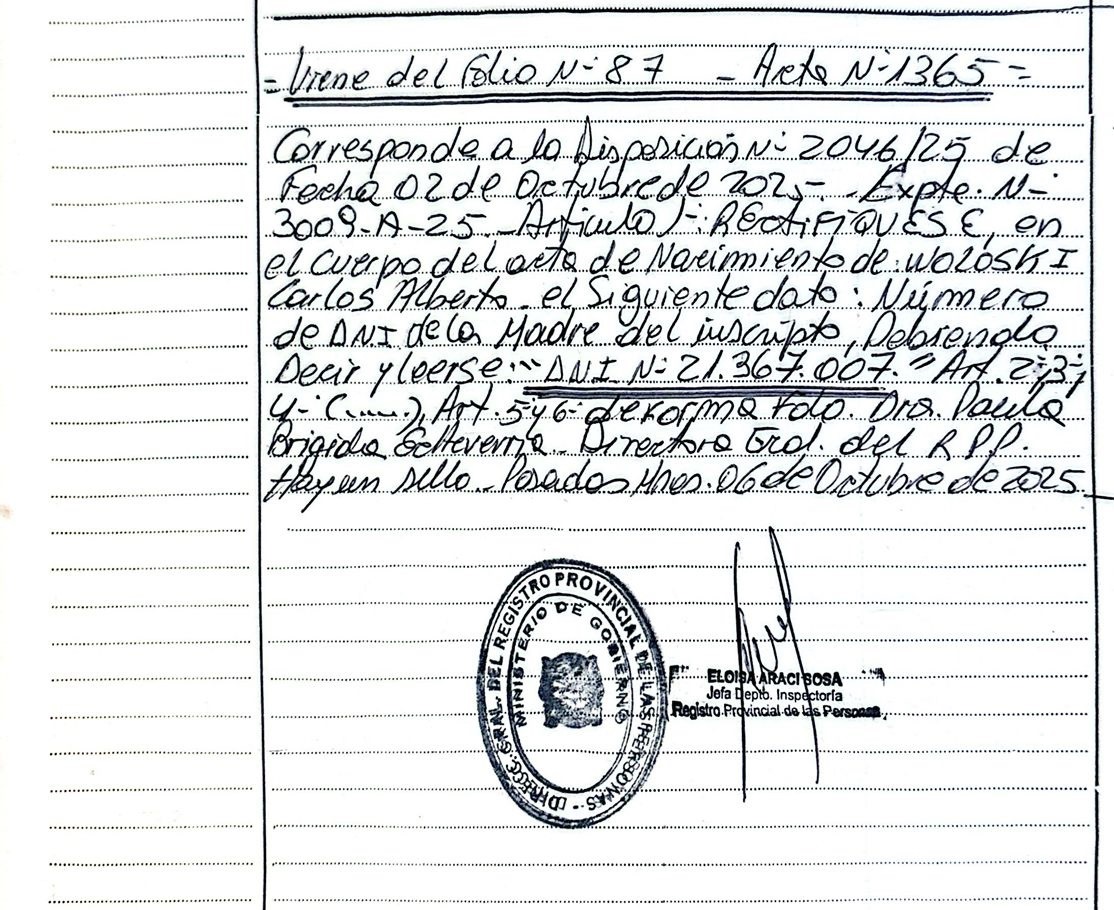 = Viene del Folio N- 87 - Acta N- 1365 =
Corresponde a la Disposición N- 2046/25 de
Fecha 02 de Octubre de 2025- - Expte. N-
3009-A-25.- Artículo 1-: RECTIFIQUESE, en
el Cuerpo del acta de Nacimiento de: WOLOSKI
Carlos Alberto - el Siguiente dato: Número
de DNI de la Madre del inscripto, Debiendo
Decir y leerse: "DNI N- 21.367.007." Art. 2-, 3-,
4- (.....), Art. 5 y 6- de forma Fdo. Dra. Paula
Brigida Echeverria - Directora Gral. del R.P.P.
Hay un sello - Posadas Mnes. 06 de Octubre de 2025
DIRECC. GRAL. DEL REGISTRO PROVINCIAL DE LAS PERSONAS -
MINISTERIO DE GOBIERNO
ELOISA ARACI SOSA
Jefa Depto. Inspectoría
Registro Provincial de las Personas